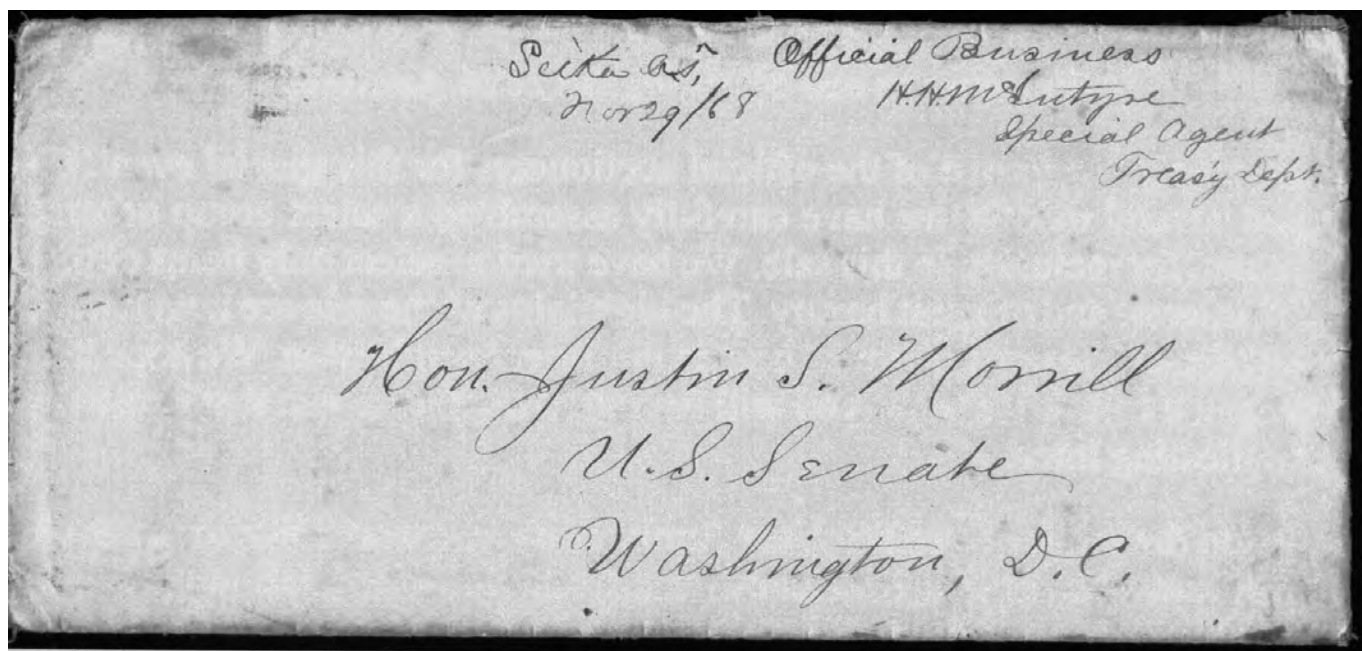 Sitka As,
Nov 29/68
Official Business
H.H. McIntyre
Special Agent
Treas'y Dept.
Hon. Justin S. Morrill
U.S. Senate
Washington, D.C.